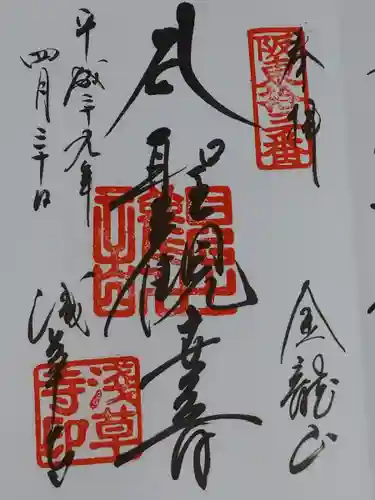 奉拝
阪東拾三番
金龍山
聖観世音
平成二十九年
四月三十日
浅草寺
淺草寺印